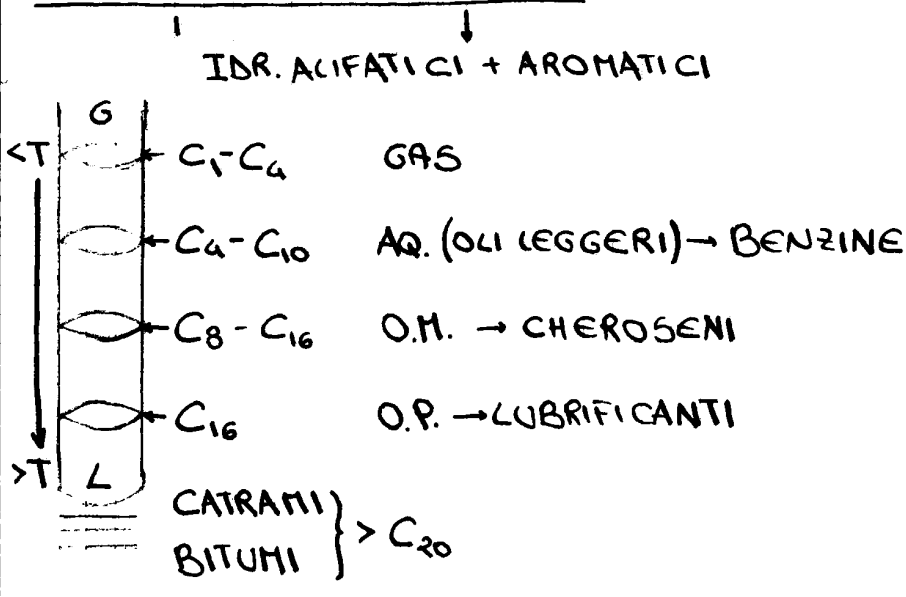 IDR. ALIFATICI + AROMATICI
G
<T C₁-C₄ GAS
C₄-C₁₀ AQ. (OLI LEGGERI) → BENZINE
C₈-C₁₆ O.M. → CHEROSENI
C₁₆ O.P. → LUBRIFICANTI
>T L
CATRAMI
BITUMI } > C₂₀